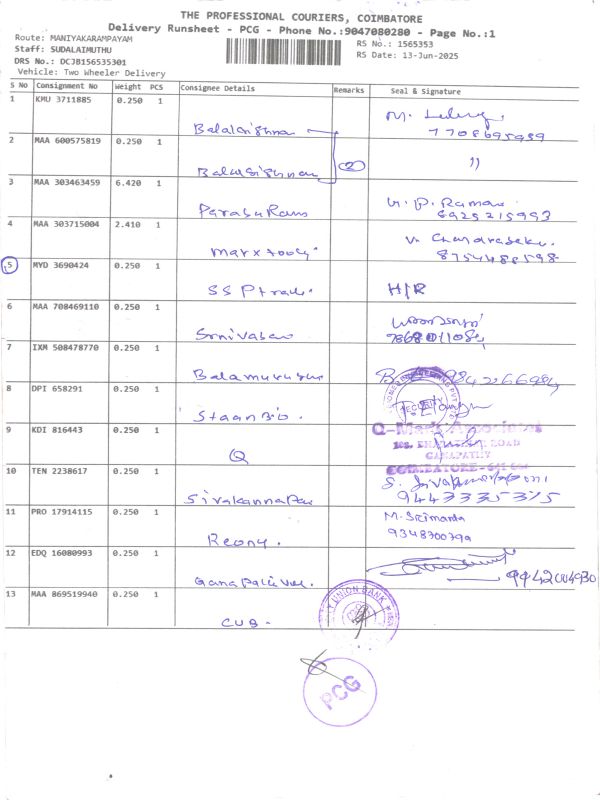 THE PROFESSIONAL COURIERS, COIMBATORE
Delivery Runsheet - PCG - Phone No.:9047080280 - Page No.:1
Route: MANIYAKARAMPAYAM
Staff: SUDALAIMUTHU
DRS No.: DCJB156535301
Vehicle: Two Wheeler Delivery
RS No.: 1565353
RS Date: 13-Jun-2025
S No Consignment No Weight PCS Consignee Details Remarks Seal & Signature
1 KMU 3711885 0.250 1 Balakrishnan M.
7708695959
2 MAA 600575819 0.250 1 Balakrishnan 2 "
3 MAA 303463459 6.420 1 Parasu Ram V. P. Raman
6925215993
4 MAA 303715004 2.410 1 marx tools V. Chandraseka.
8754488598
5 MYD 3690424 0.250 1 SS Ptrade. H/R
6 MAA 708469110 0.250 1 Srinivasan
7868011084
7 IXM 508478770 0.250 1 Balamurugan
8 DPI 658291 0.250 1 Staan Bio. SECURITY
9 KDI 816443 0.250 1 Q Q-Mark Associates
ROAD
GANAPATHY
COIMBATORE-641
10 TEN 2238617 0.250 1 Sivakannapan S.
9443335375
11 PRO 17914115 0.250 1 Reony. M. Srimanta
9348700799
12 EDQ 16080993 0.250 1 Ganapathivel. 9942004930
13 MAA 869519940 0.250 1 CUB. CITY UNION BANK
PCG